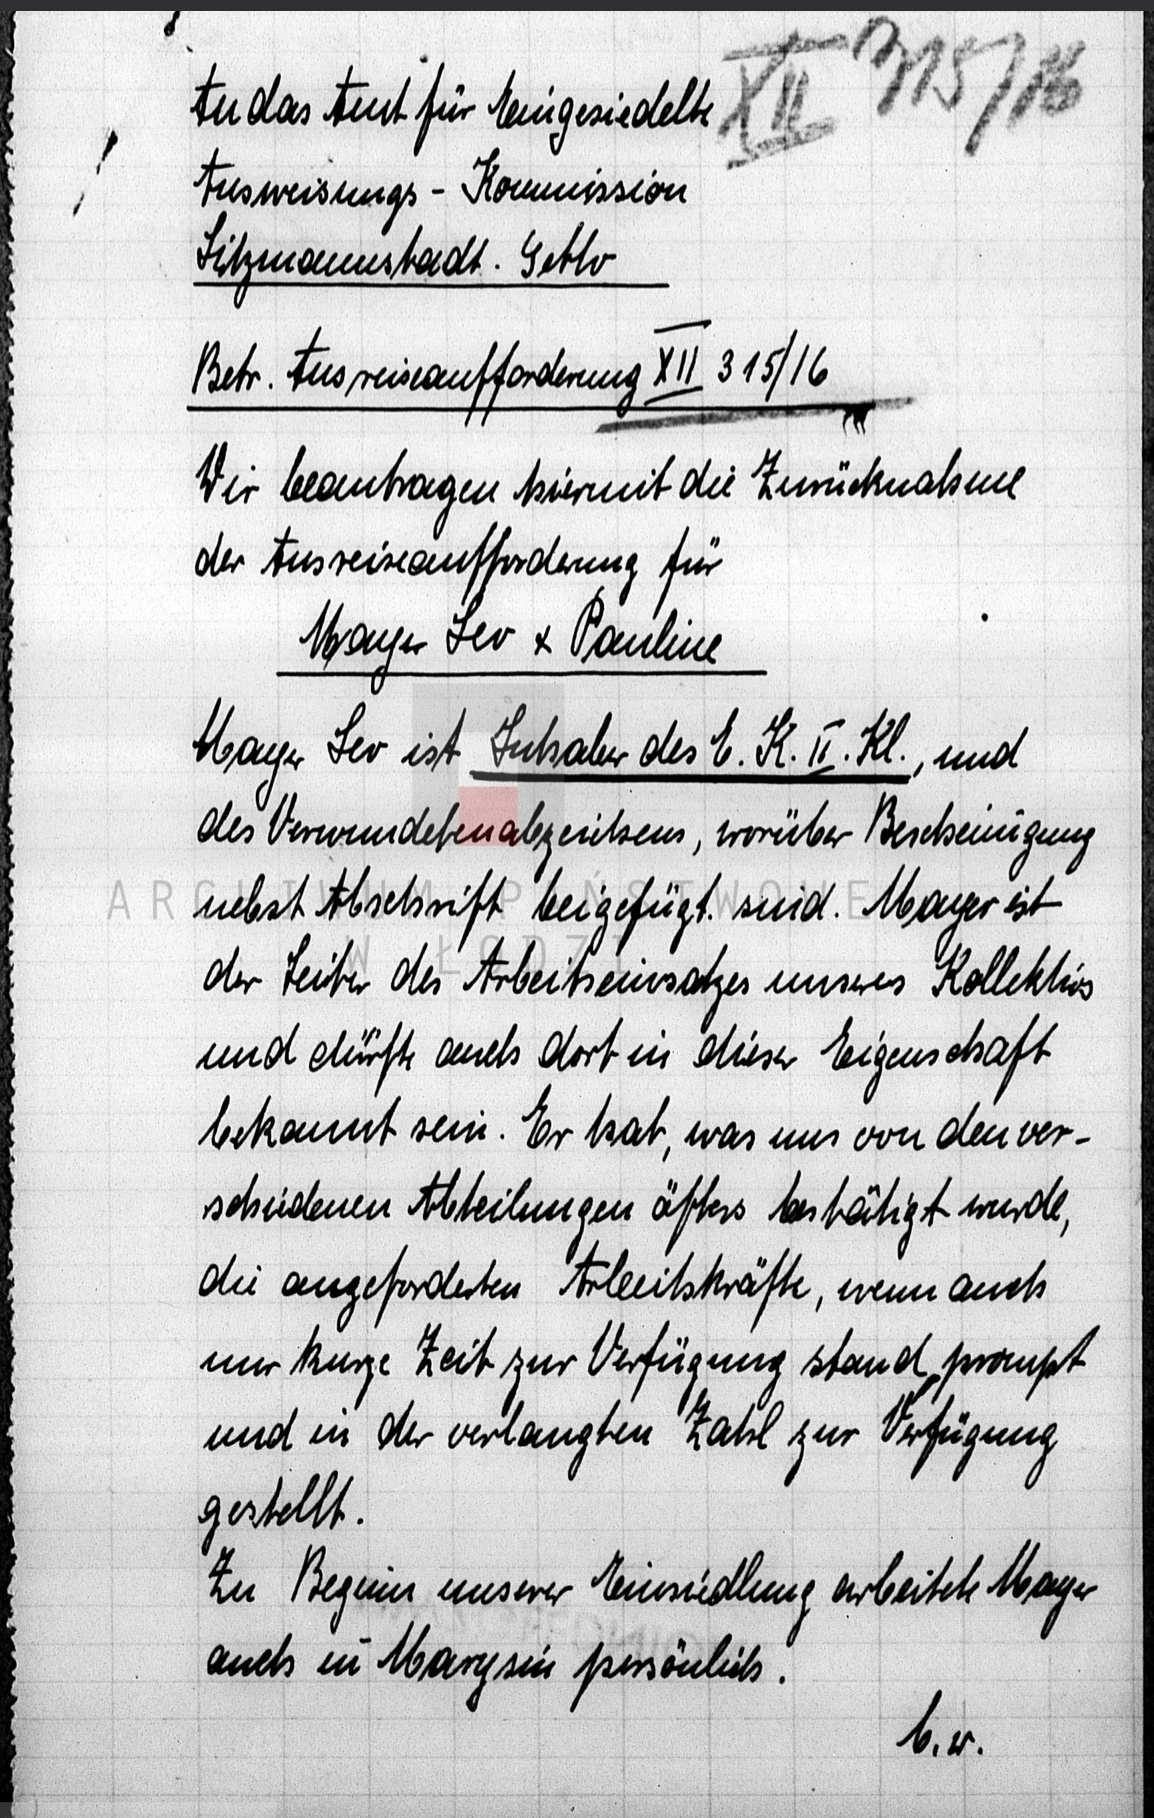 XII 315/16
An das Amt für Eingesiedelte
Ausweisungs - Kommission
Litzmannstadt. Getto
Betr. Ausreiseaufforderung XII 315/16
Wir beantragen hiermit die Zurücknahme
der Ausreiseaufforderung für
Mayer Leo & Pauline
Mayer Leo ist Inhaber des E. K. II. Kl., und
des Verwundetenabzeichens, worüber Bescheinigung
nebst Abschrift beigefügt sind. Mayer ist
ARCHIWUM PAŃSTWOWE
W ŁODZI
der Leiter des Arbeitseinsatzes unseres Kollektivs
und dürfte auch dort in dieser Eigenschaft
bekannt sein. Er hat, was uns von den ver-
schiedenen Abteilungen öfters bestätigt wurde,
die angeforderten Arbeitskräfte, wenn auch
nur kurze Zeit zur Verfügung stand, prompt
und in der verlangten Zahl zur Verfügung
gestellt.
Zu Beginn unserer Einsiedlung arbeitete Mayer
auch in Marysin persönlich.
b.w.